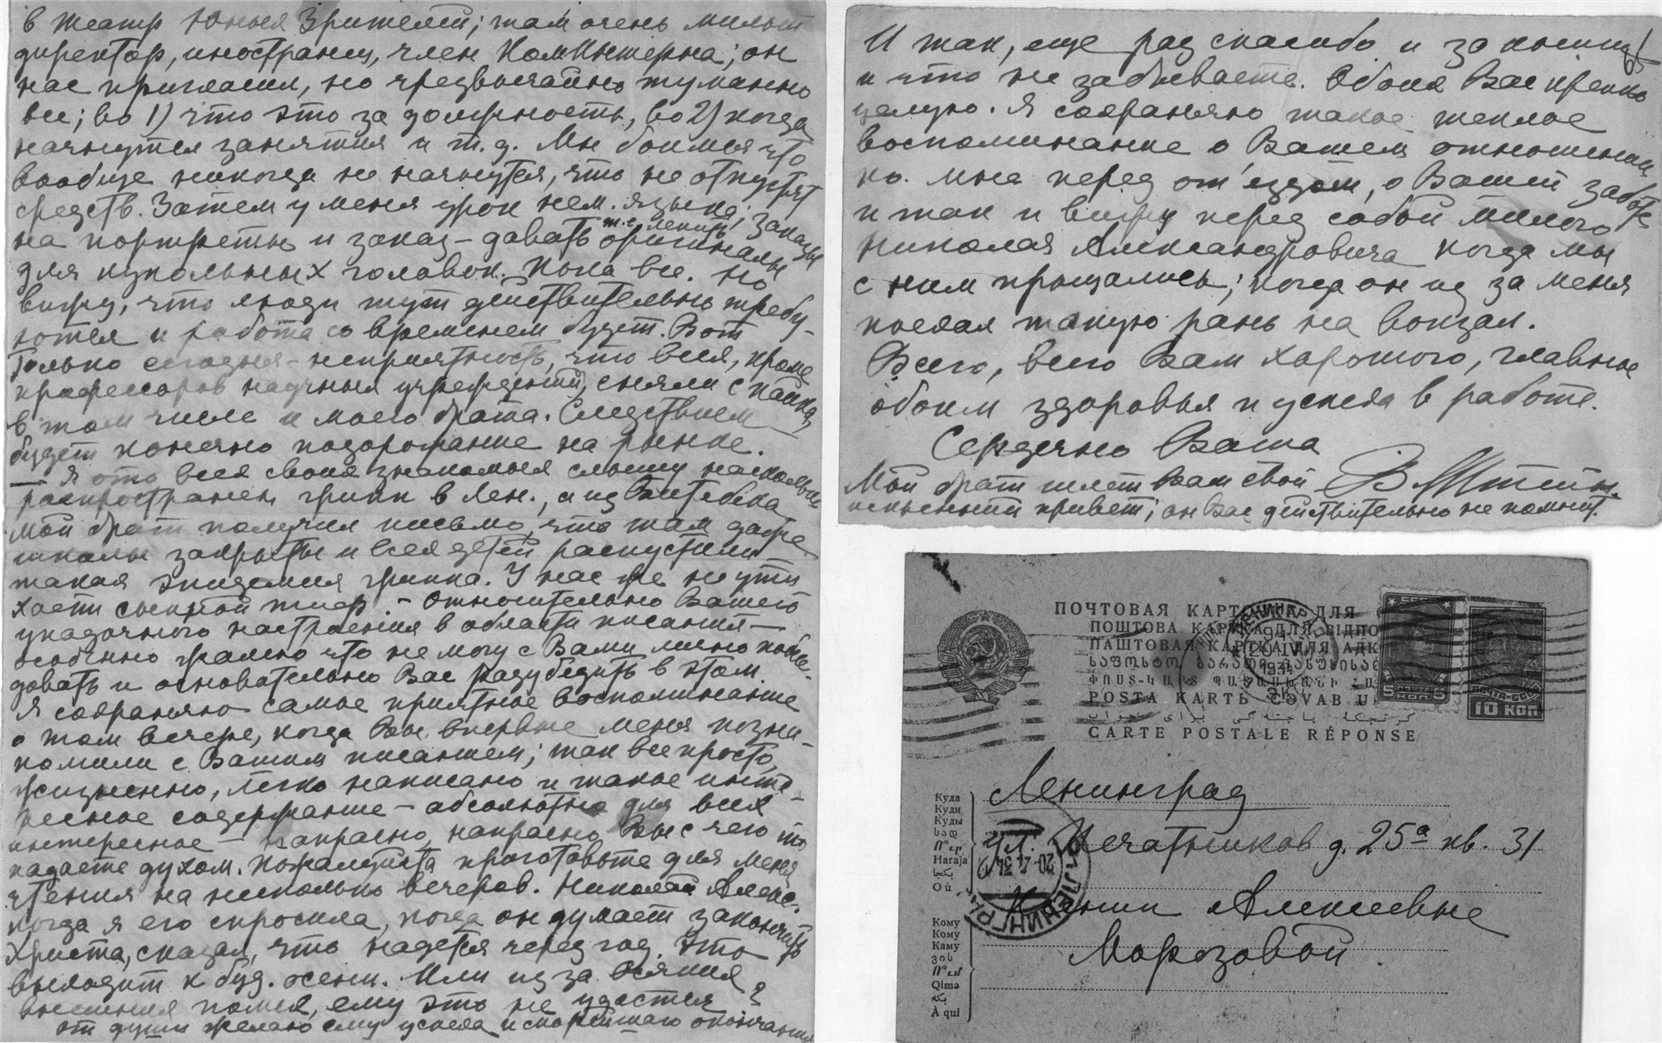 в театр Юных Зрителей; там очень милый
директор, иностранец, член Коминтерна; он
нас пригласил, но чрезвычайно туманно
все; во 1) что это за должность, во 2) когда
начнутся занятия и т.д. Мы боимся что
вообще никогда не начнутся, что не отпустят
средств. Затем у меня урок нем. языка; заказы
на портреты и заказ – давать т.е. лепить оригиналы
для кукольных головок. Пока все. Но
вижу, что люди тут действительно требу-
ются и работа со временем будет. Вот
только сегодня – неприятность, что всех, кроме
профессоров научных учреждений, сняли с пайка,
в том числе и моего брата. Следствием
будет конечно подорожание на рынке.
– Я ото всех своих знакомых слышу насколько
распространен грипп в Лен., а из Витебска
мой брат получил письмо, что там даже
школы закрыты и всех детей распустили –
такая эпидемия гриппа. У нас же не ути
хает сыпной тиф. – Относительно Вашего
упадочного настроения в области писания –
особенно жалею что не могу с Вами лично побесе-
довать и основательно Вас разубедить в этом.
Я сохраняю самое приятное воспоминание
о том вечере, когда Вы впервые меня позна-
комили с Вашим писанием; так все просто,
жизненно, легко написано и такое инте-
ресное содержание – абсолютно для всех
интересное – напрасно, напрасно Вы с чего то
падаете духом. Пожалуйста приготовьте для меня
чтения на несколько вечеров. Николай Алекс.
когда я его спросила, когда он думает закончить
Христа, сказал, что надеется через год. Это
выходит к буд. осени. Или из за всяких
внешних помех, ему это не удастся?
От души желаю ему успеха и скорейшего окончания
И так, еще раз спасибо и за книгу
и что не забываете. Обоих Вас крепко
целую. Я сохраняю такое теплое
воспоминание о Вашем отношении
ко мне перед от'ездом, о Вашей заботе
и так и вижу перед собой милого
Николая Александровича когда мы
с ним прощались; когда он из за меня
поехал такую рань на вокзал.
Всего, всего Вам хорошего, главное
обоим здоровья и успеха в работе.
Сердечно Ваша
В Штейн.
Мой брат шлет Вам свой
искренний привет; он Вас действительно не помнит.
ПОЧТОВАЯ КАРТОЧКА ДЛЯ
ПОШТОВА КАРТКА ДЛЯ ВІДПО
ПАШТОВАЯ КАРТКА ДЛЯ АДК
POSTA KARTЬ COVAB U
CARTE POSTALE RÉPONSE
5 5
ПОЧТА СССР
10 КОП
ЛЕНИНГРАД
Куда
Куди
Куды
Haraja
Où
Ленинград
ул. Печатников д. 25а кв. 31
Ксении Алексеевне
Морозовой.
Кому
Кому
Каму
Qimə
À qui
ЛЕНИНГРАД
20.4.34